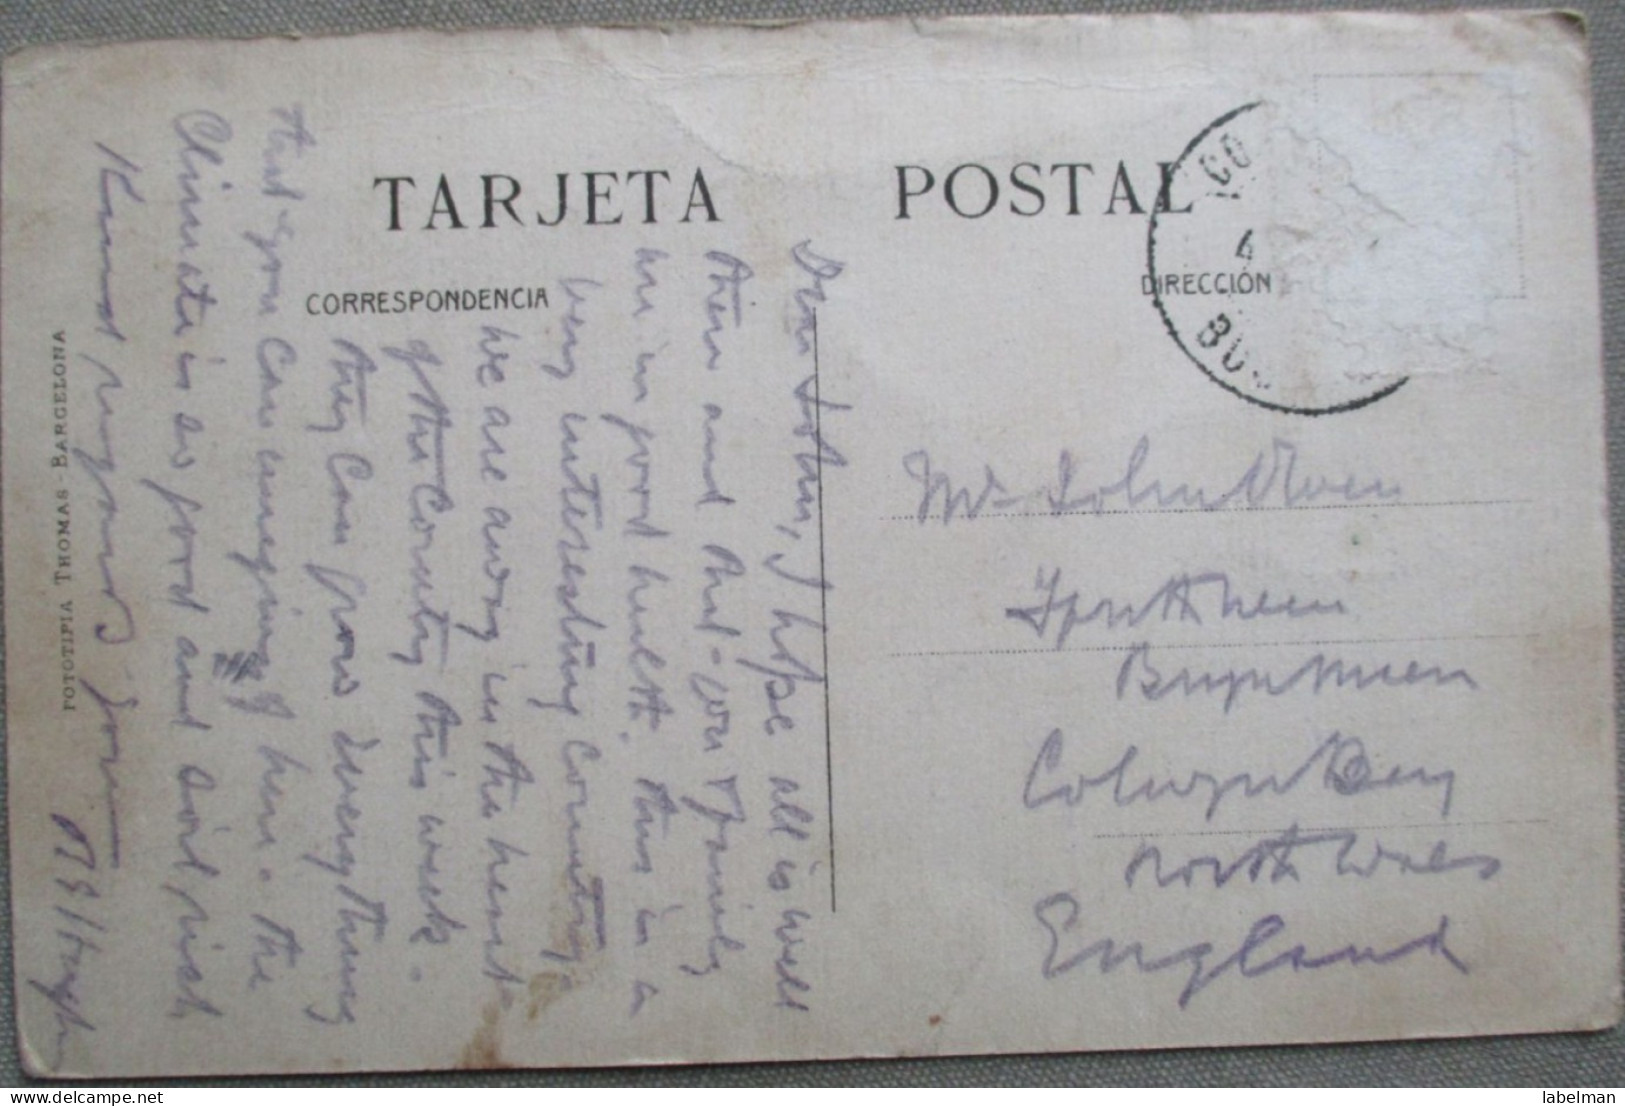 TARJETA POSTAL
CORRESPONDENCIA
DIRECCIÓN
CO
4
BU
FOTOTIPIA THOMAS - BARCELONA
Dear John, I hope all is well
their and that you & family
are in good health. this is a
very interesting Country.
We are away in the heart
of the Country this week.
they can grow Everything
that you can imagine of here. the
Climate is so good and soil rich
Kind regards from
Hugh
Mr John Owen
Bryn
Colwyn Bay
North Wales
England
labelman
delcampe.net